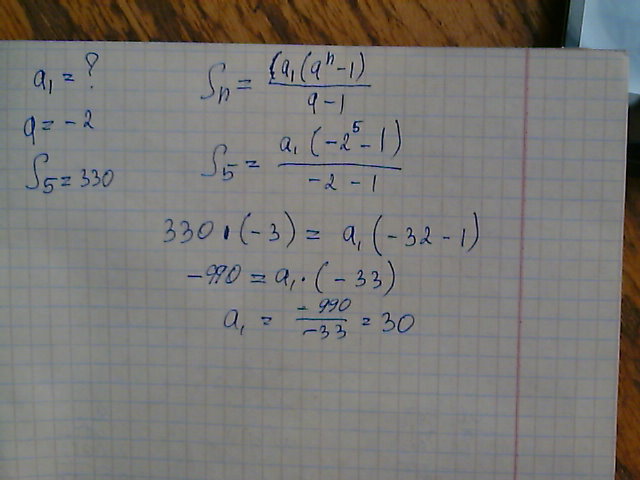 a₁ = ?
q = -2
S₅ = 330
Sₙ = (a₁(qⁿ-1) / q-1
S₅ = a₁(-2⁵-1) / -2-1
330·(-3) = a₁(-32-1)
-990 = a₁·(-33)
a₁ = -990 / -33 = 30